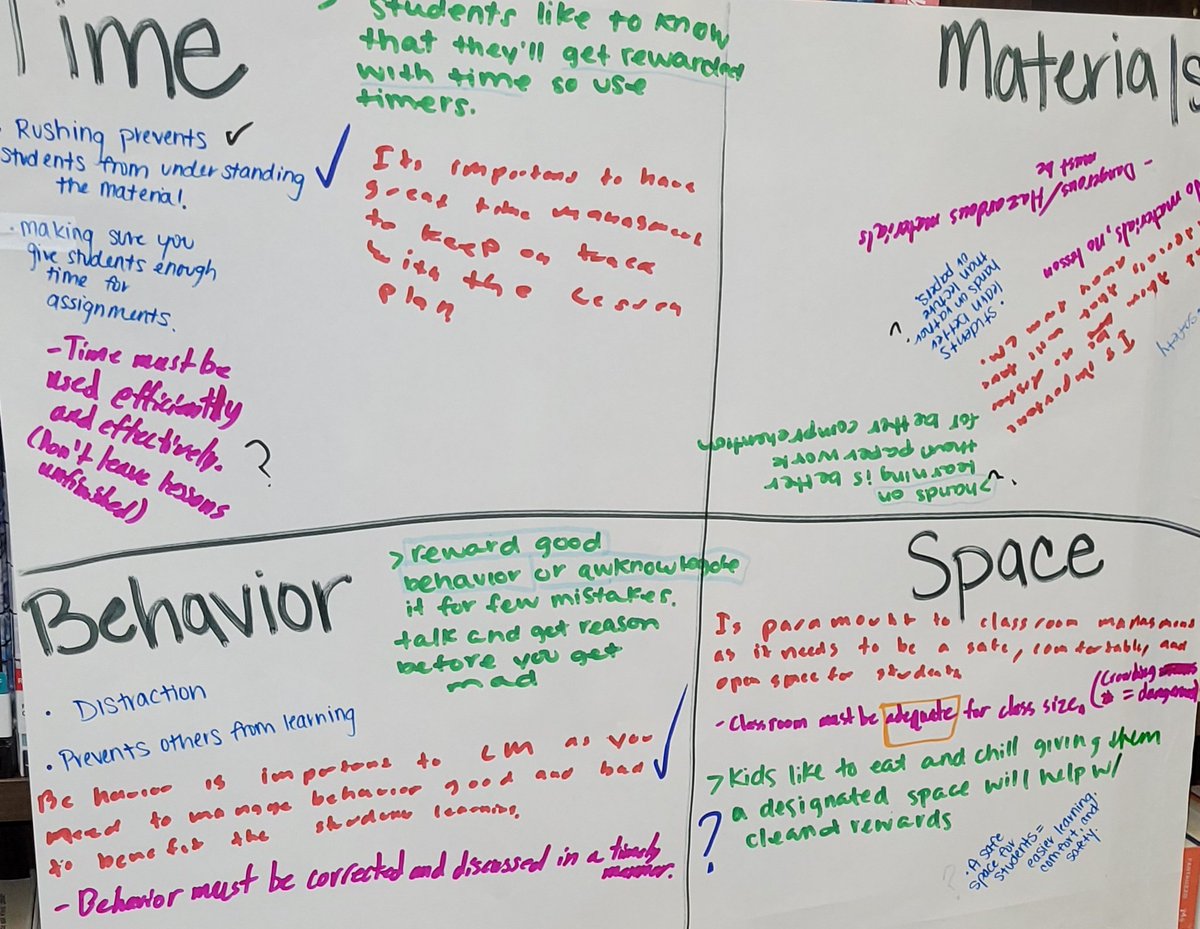 Time
> Students like to know
that they'll get rewarded
with time so use
timers.
· Rushing prevents ✓
students from understanding
the material.
· making sure you
give students enough
time for
assignments.
Its importans to have
great time managment
to keep on track
with the lesson
plan
- Time must be
used efficiently
and effectively.
(Don't leave lessons
unfinished)
?
Materials
- Dangerous/Hazardous materials
must be
No materials, no lesson
· students
learn better
hands on rather
than lecture
or papers
Is importans
>hands on
learning is better
than paper work
for bether comprehention
Behavior
> reward good
behavior or awknowledge
it for few mistakes.
talk and get reason
before you get
mad
· Distraction
· Prevents others from learning
Behavior is importans to CM as you
need to manage behavior good and bad
to benefit the students learning.
- Behavior must be corrected and discussed in a timely
manner.
Space
Is paramount to classroom managment
as it needs to be a safe, comfortable, and
open space for students
- Classroom must be adequate for class size. (Crowding
= dangerous)
> Kids like to eat and chill giving them
a designated space will help w/
cleand rewards
?
· A safe
space for
students =
easier learning,
comfort, and
safety.
?